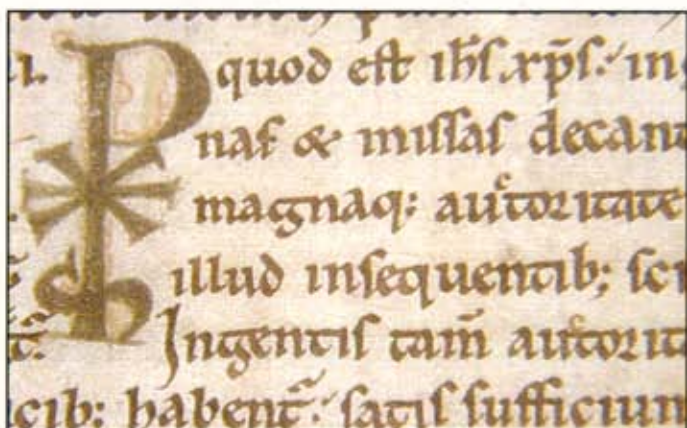 P quod est ihs xps. in
nas & missas decant
magnaq: auctoritate
illud insequentib; sci
Ingentis tam̄ autorit
icib; habent. satis sufficiun